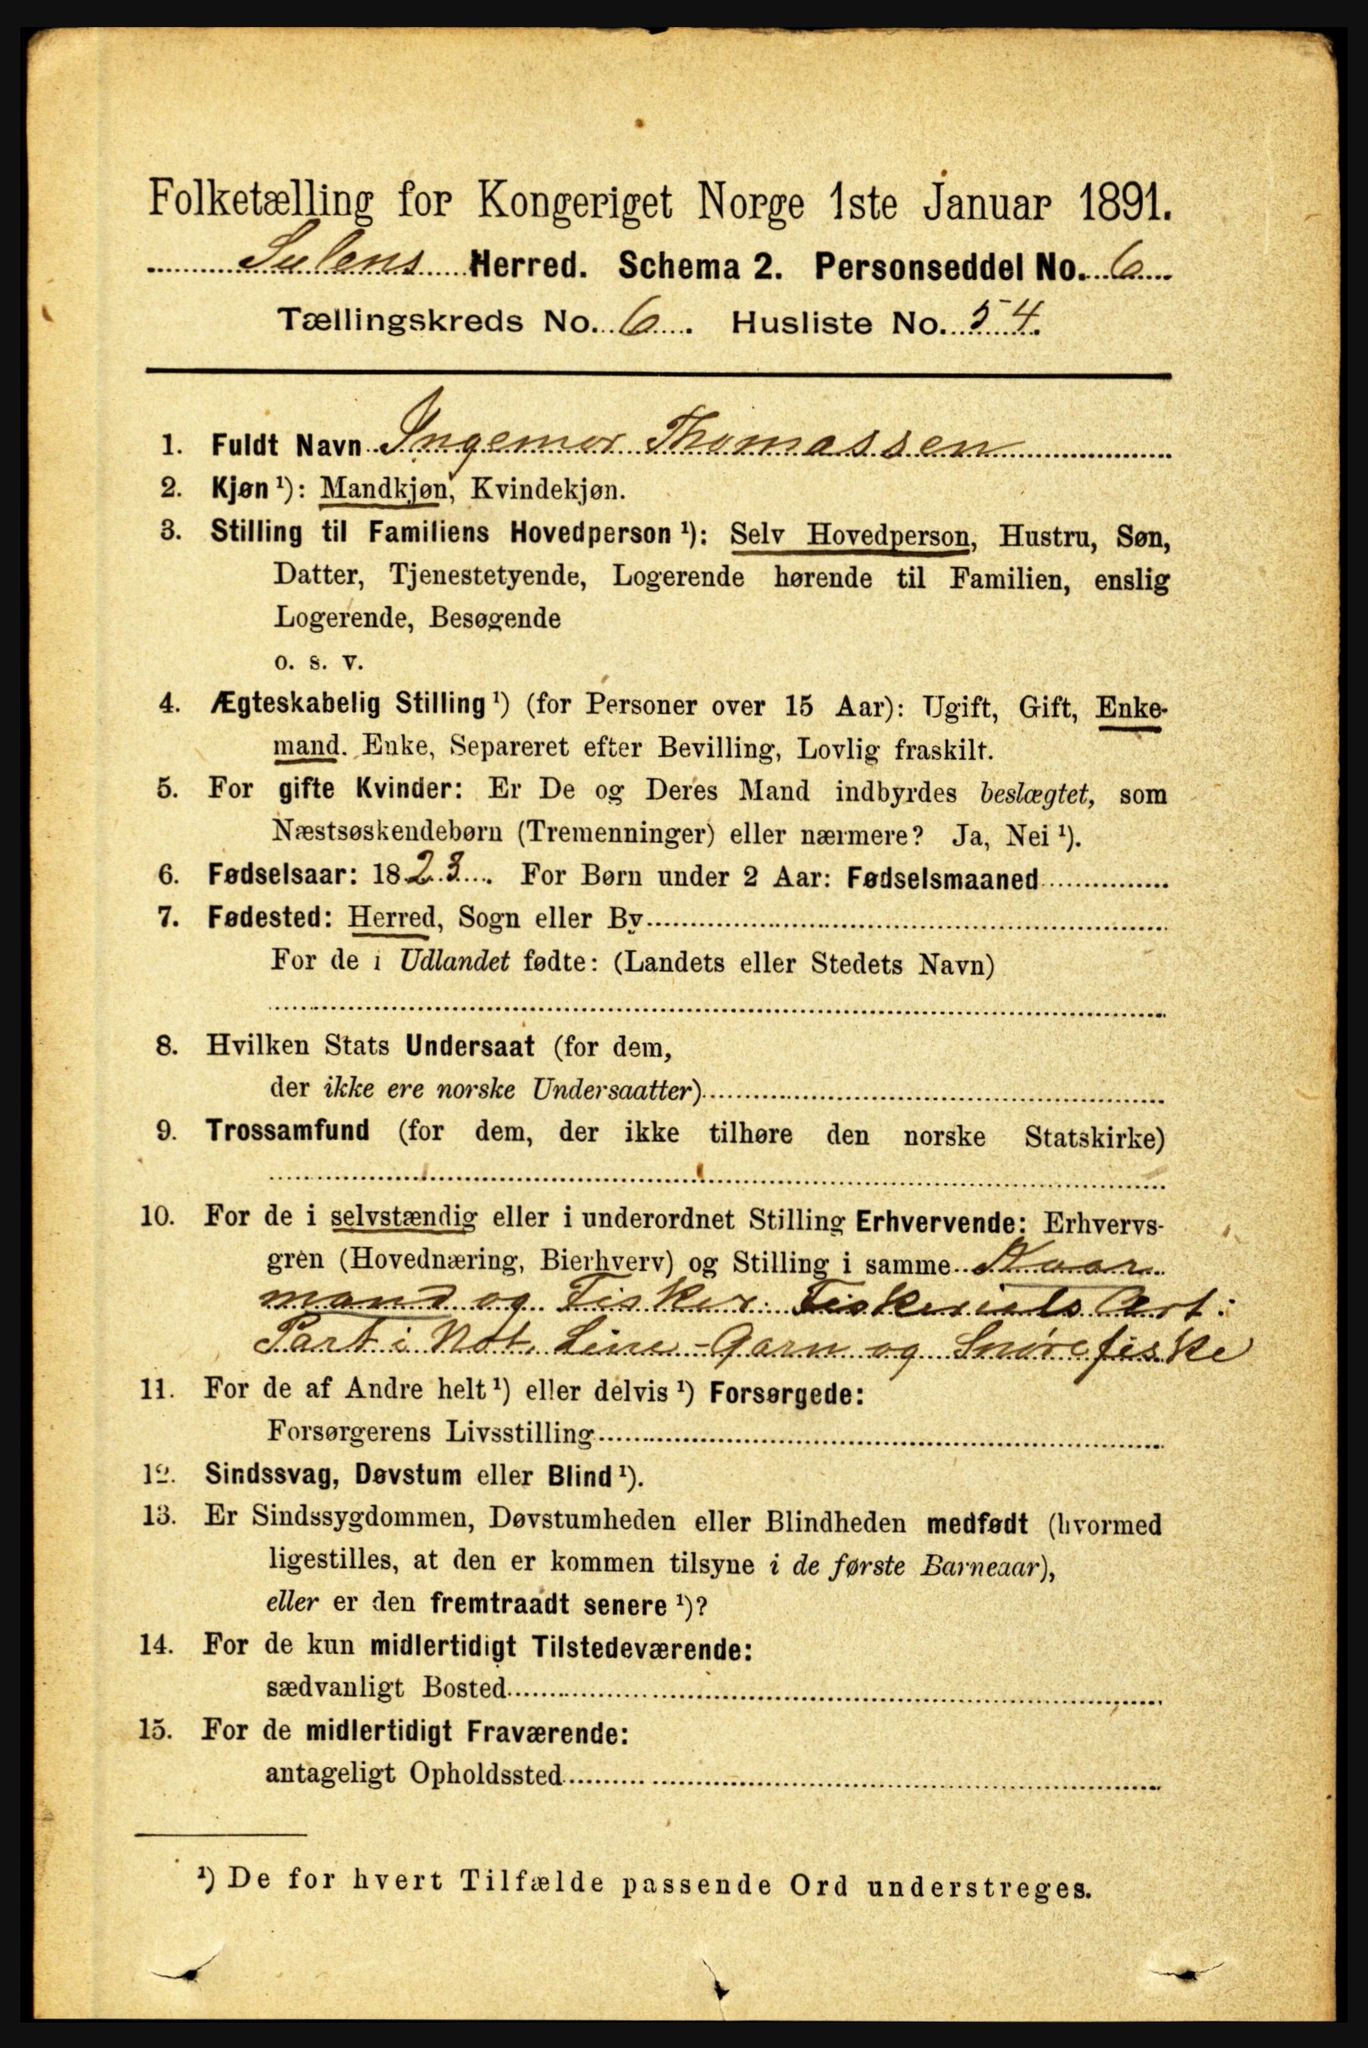 Folketælling for Kongeriget Norge 1ste Januar 1891.
Sulens Herred. Schema 2. Personseddel No. 6
Tællingskreds No. 6. Husliste No. 54.
1. Fuldt Navn Ingemor Thomassen
2. Kjøn ¹): Mandkjøn, Kvindekjøn.
3. Stilling til Familiens Hovedperson ¹): Selv Hovedperson, Hustru, Søn,
Datter, Tjenestetyende, Logerende hørende til Familien, enslig
Logerende, Besøgende
o. s. v.
4. Ægteskabelig Stilling ¹) (for Personer over 15 Aar): Ugift, Gift, Enke-
mand. Enke, Separeret efter Bevilling, Lovlig fraskilt.
5. For gifte Kvinder: Er De og Deres Mand indbyrdes beslægtet, som
Næstsøskendebørn (Tremenninger) eller nærmere? Ja, Nei ¹).
6. Fødselsaar: 1823. For Børn under 2 Aar: Fødselsmaaned
7. Fødested: Herred, Sogn eller By
For de i Udlandet fødte: (Landets eller Stedets Navn)
8. Hvilken Stats Undersaat (for dem,
der ikke ere norske Undersaatter)
9. Trossamfund (for dem, der ikke tilhøre den norske Statskirke)
10. For de i selvstændig eller i underordnet Stilling Erhvervende: Erhvervs-
gren (Hovednæring, Bierhverv) og Stilling i samme
mand og Fisker. Fiskeriets Art:
Part i Not, Line-Garn og Snørefiske
11. For de af Andre helt ¹) eller delvis ¹) Forsørgede:
Forsørgerens Livsstilling
12. Sindssvag, Døvstum eller Blind ¹).
13. Er Sindssygdommen, Døvstumheden eller Blindheden medfødt (hvormed
ligestilles, at den er kommen tilsyne i de første Barneaar),
eller er den fremtraadt senere ¹)?
14. For de kun midlertidigt Tilstedeværende:
sædvanligt Bosted
15. For de midlertidigt Fraværende:
antageligt Opholdssted
¹) De for hvert Tilfælde passende Ord understreges.